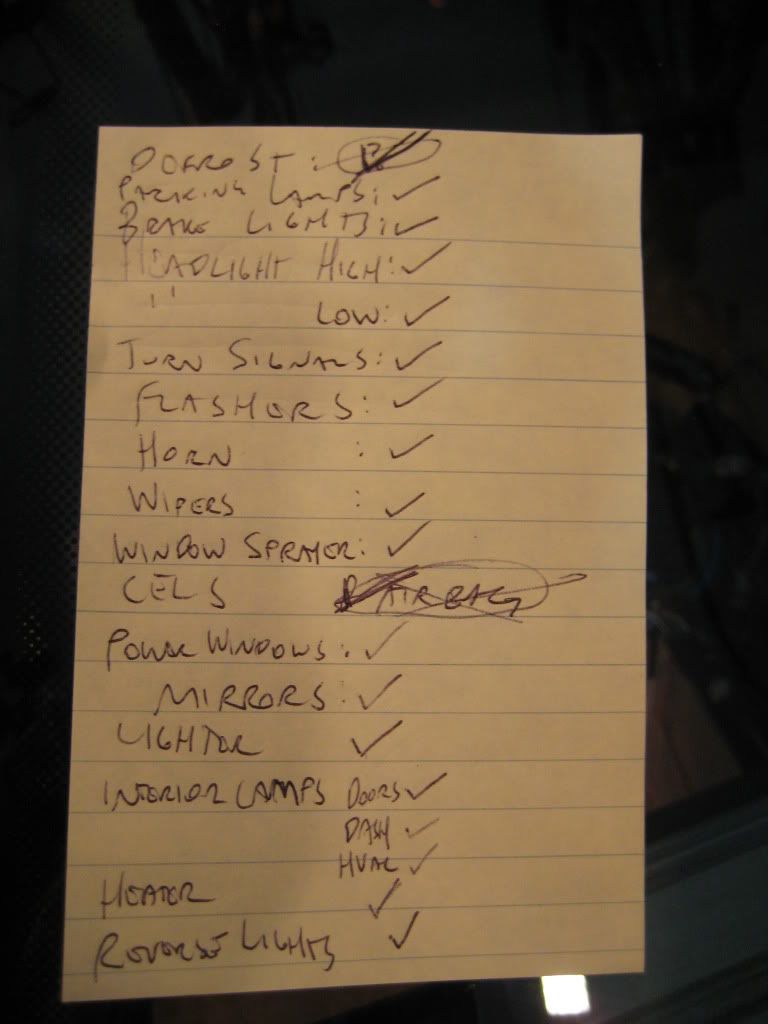 DEFROST : ✓
PARKING LAMPS: ✓
BRAKE LIGHTS: ✓
HEADLIGHT HIGH: ✓
" LOW: ✓
TURN SIGNALS: ✓
FLASHERS: ✓
HORN : ✓
WIPERS : ✓
WINDOW SPRAYER: ✓
CELS AIRBAG
POWER WINDOWS: ✓
MIRRORS: ✓
LIGHTER ✓
INTERIOR LAMPS DOORS ✓
DASH ✓
HVAC ✓
HEATER ✓
REVERSE LIGHTS ✓